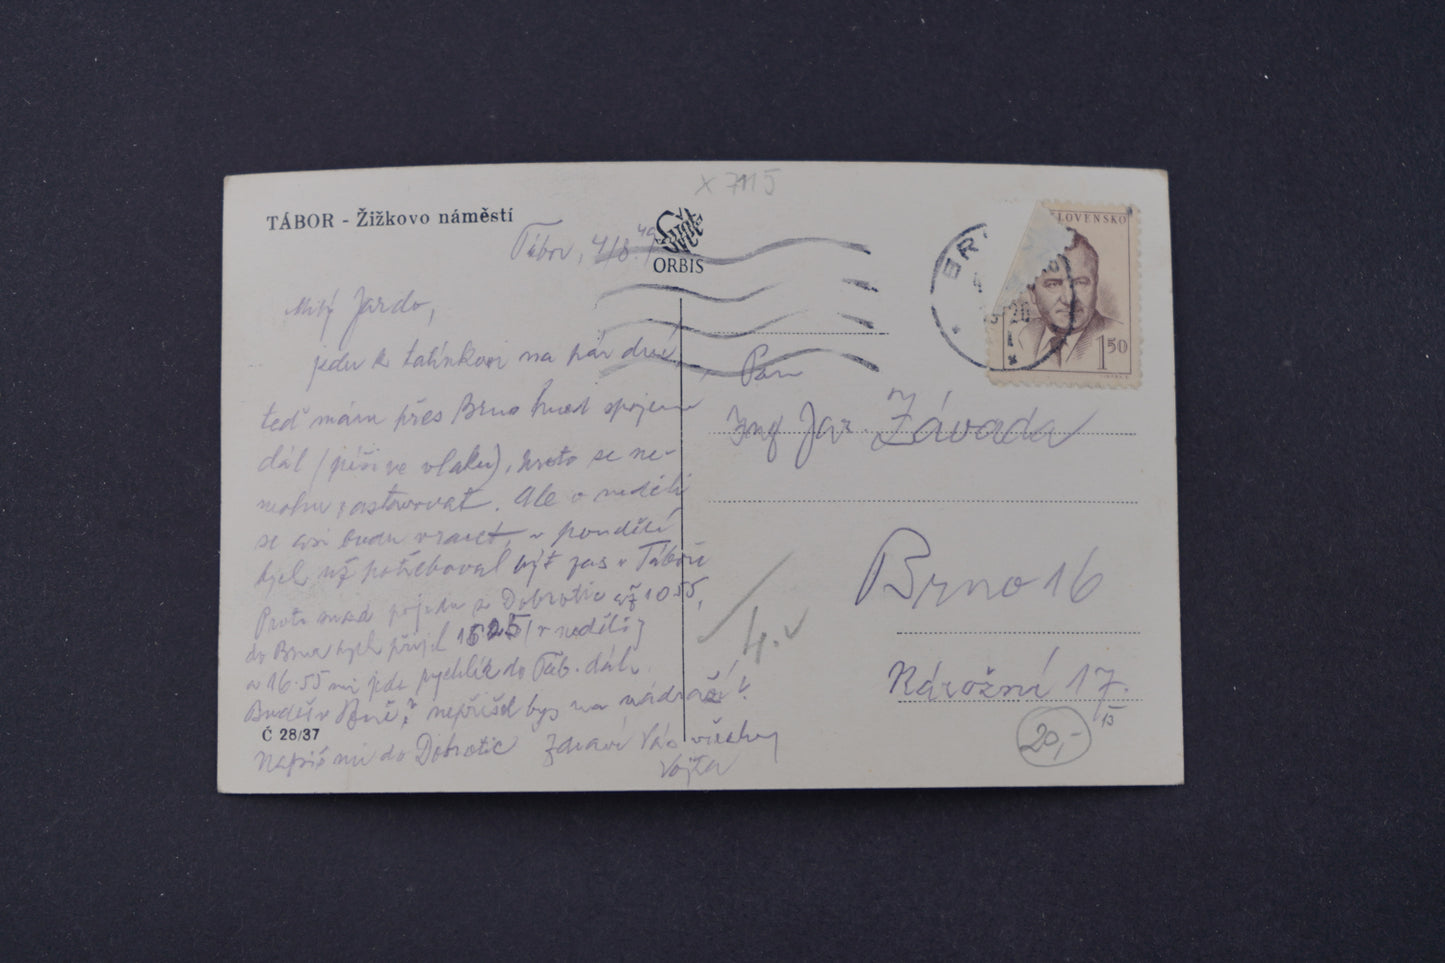 x 7115
TÁBOR - Žižkovo náměstí
Tábor, 4/8. 49
ORBIS
Milý Jardo,
jedu k tatínkovi na pár dní,
teď mám přes Brno hned spojení
dál (píši ve vlaku), proto se ne-
mohu zastavovat. Ale v neděli
se asi budu vracet, v pondělí
bych už potřeboval být zas v Táboře
Proto snad pojedu z Dobrotic až 1055,
do Brna bych přijel 1525 (v neděli)
a 16.55 mi jede rychlík do Táb. dál.
Budeš v Brně? nepřišel bys na nádraží?
Napiš mi do Dobrotic Zdraví Vás všechny
Vojta
Č 28/37
BR
20
SLOVENSKO
1 50
Pan
Ing Jar. Závada
Brno 16
Nárožní 17.
13
4.
20,-